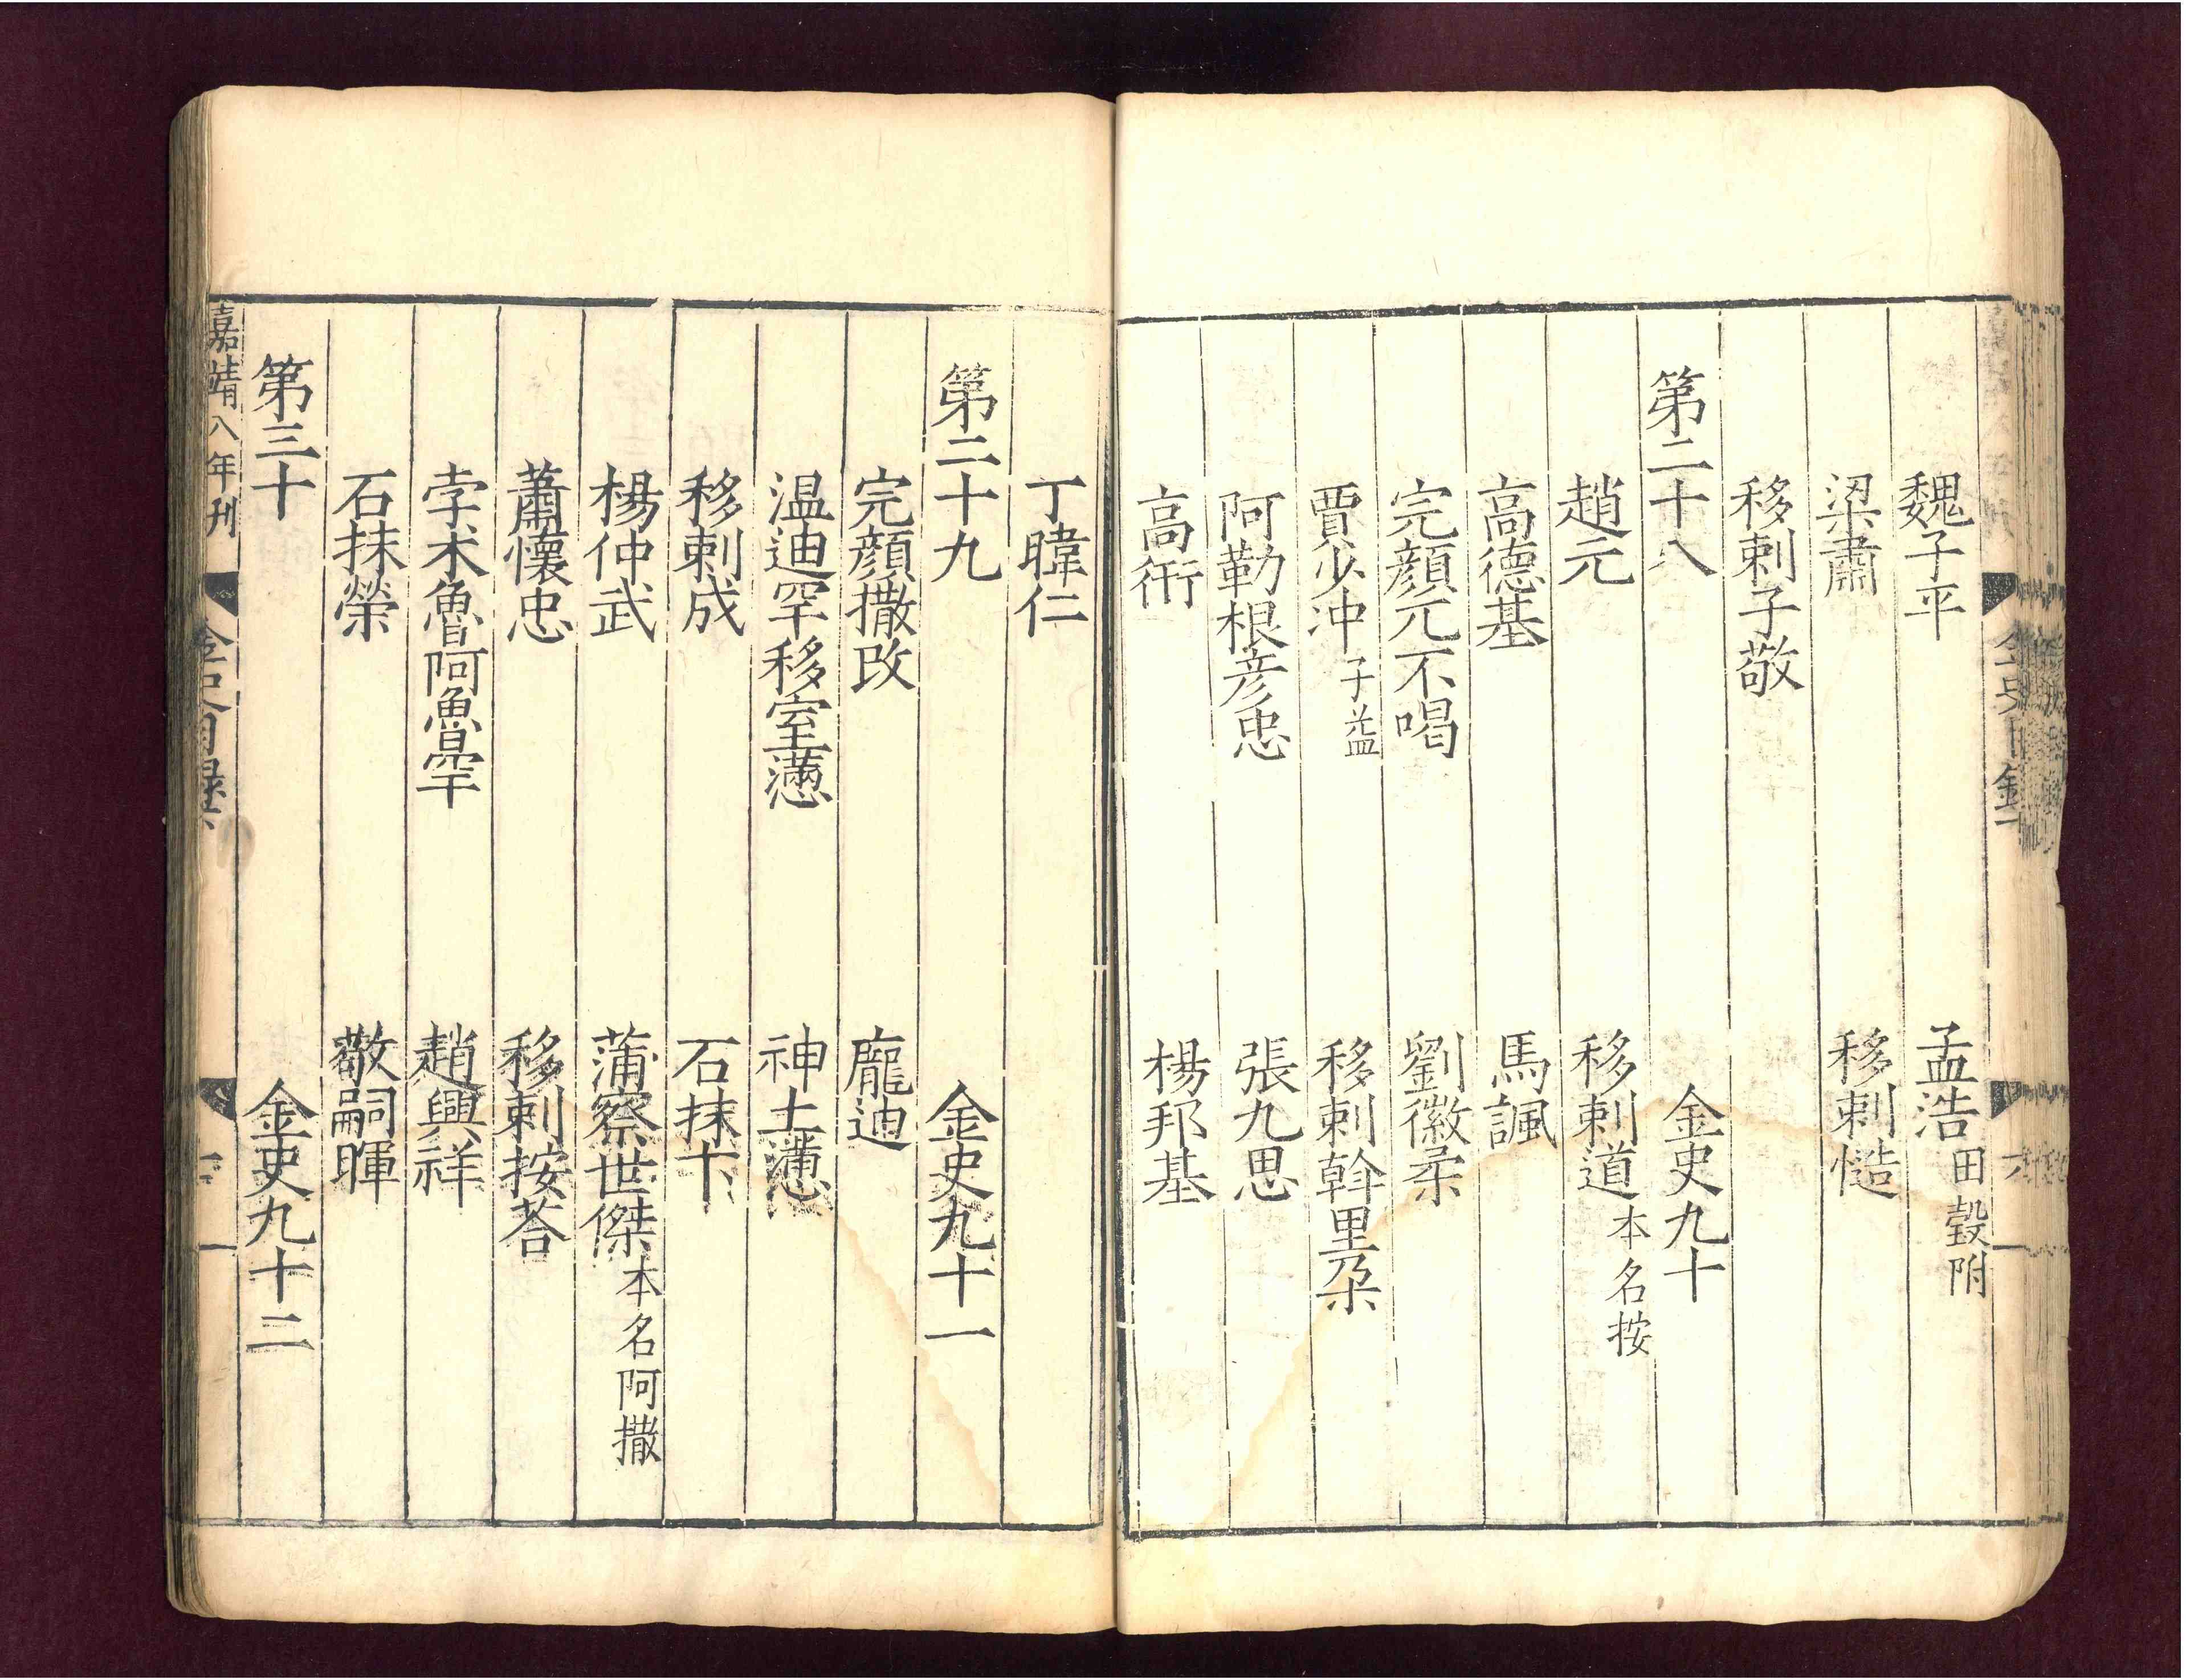 魏子平　孟浩田瑴附
梁肅　移剌慥
移剌子敬
第二十八　金史九十
趙元　移剌道本名按
高德基　馬諷
完顏兀不喝　劉徽柔
賈少冲子益　移剌斡里朶
阿勒根彥忠　張九思
高衎　楊邦基
丁暐仁
第二十九　金史九十一
完顏撒改　龐迪
温迪罕移室懣　神土懣
移剌成　石抹卞
楊仲武　蒲察世傑本名阿撒
蕭懷忠　移剌按荅
孛术魯阿魯罕　趙興祥
石抹榮　敬嗣暉
第三十　金史九十二
嘉靖八年刊　金史目錄